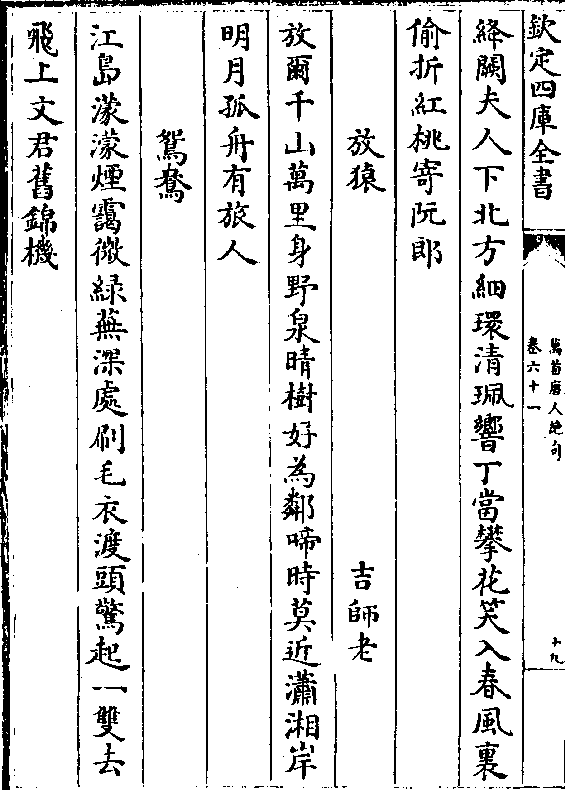 欽定四庫全書
萬首唐人絶句
卷六十一
十九
絳闕夫人下北方細環清珮響丁當攀花笑入春風裏
偷折紅桃寄阮郎
放猿
吉師老
放爾千山萬里身野泉晴樹好為鄰啼時莫近瀟湘岸
明月孤舟有旅人
鴛鴦
江島濛濛煙靄微緑蕪深處刷毛衣渡頭驚起一雙去
飛上文君舊錦機